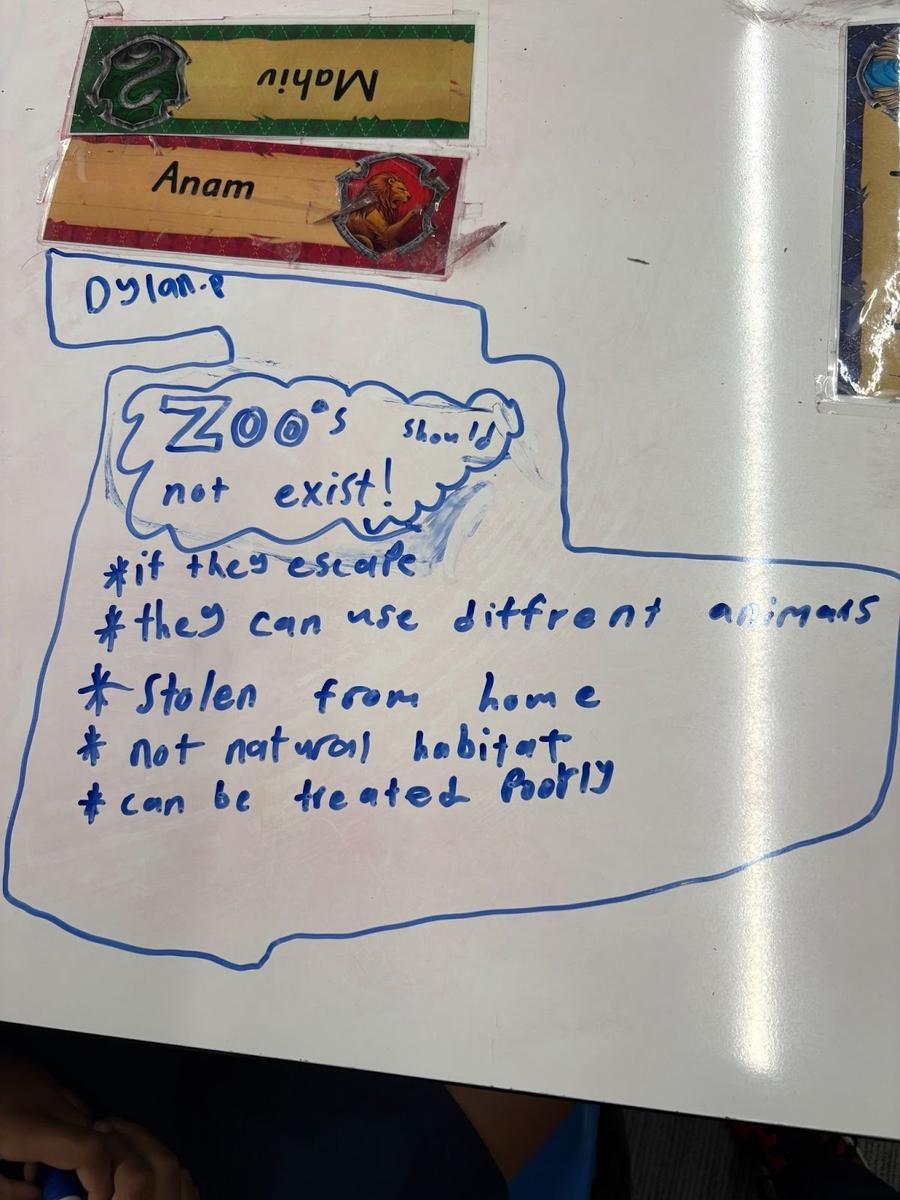 Mahiv
Anam
Dylan.P
Zoo's should
not exist!
*if they escape
*they can use diffrent animals
*Stolen from home
*not natural habitat
*can be treated Poorly